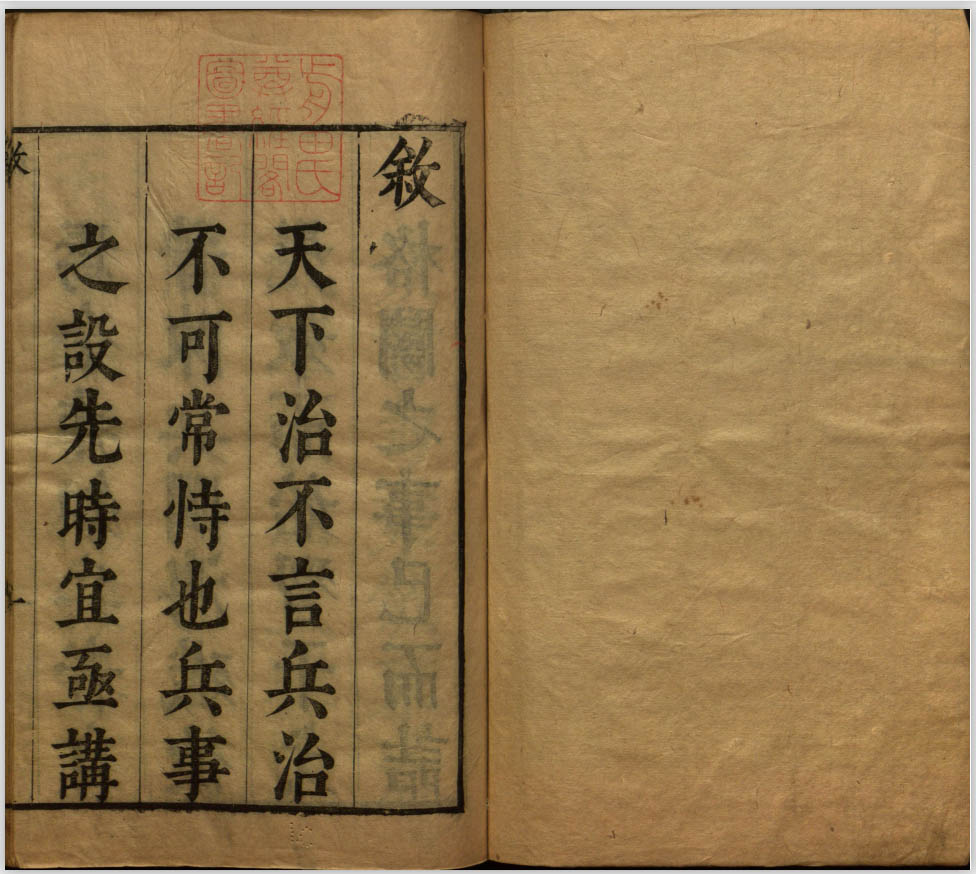 敘
天下治不言兵治
不可常恃也兵事
之設先時宜亟講
敘